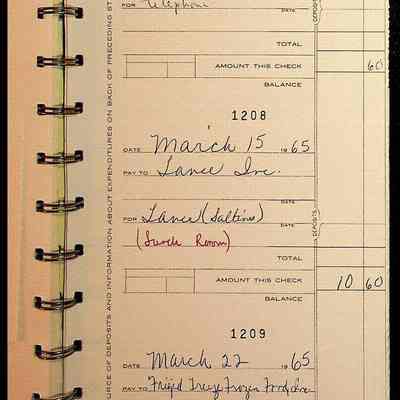 FOR Telephone DATE
DEPOSITS
TOTAL
AMOUNT THIS CHECK 60
BALANCE
1208
DATE March 15 1965
PAY TO Lance Inc.
DATE
FOR Lance (Saltines)
(Lunch Room)
DEPOSITS
TOTAL
AMOUNT THIS CHECK 10 60
BALANCE
1209
DATE March 22 1965
PAY TO Frigid Freeze Frozen Foods Inc
URCE OF DEPOSITS AND INFORMATION ABOUT EXPENDITURES ON BACK OF PRECEDING ST